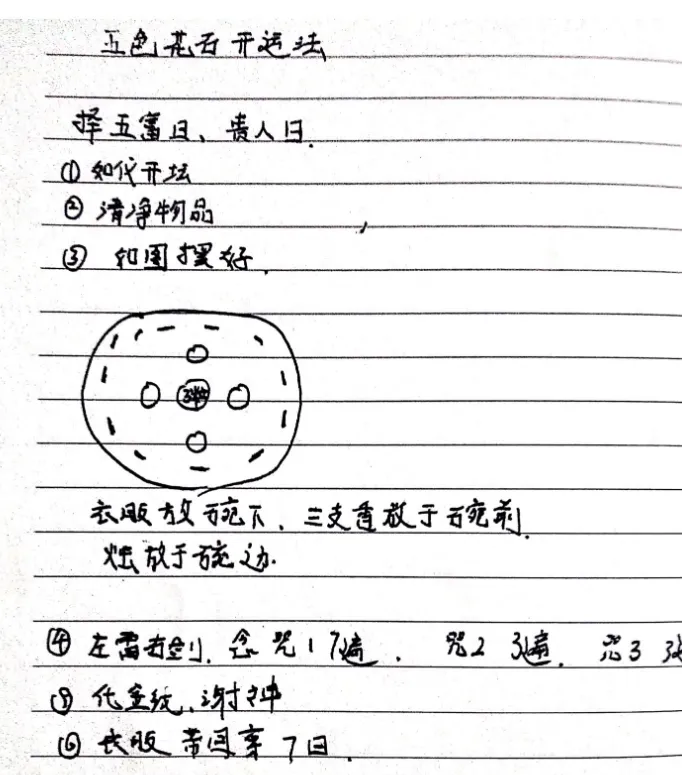 五色花石开运法
择五富日、贵人日.
① 如代开坛
② 清净物品
③ 如图摆好.
衣服放碗下、三支香放于碗前.
烛放于碗边.
④ 左雷右剑. 念咒1 7遍. 咒2 3遍. 咒3 3
⑤ 化金纸、谢神
⑥ 衣服带回穿7日.